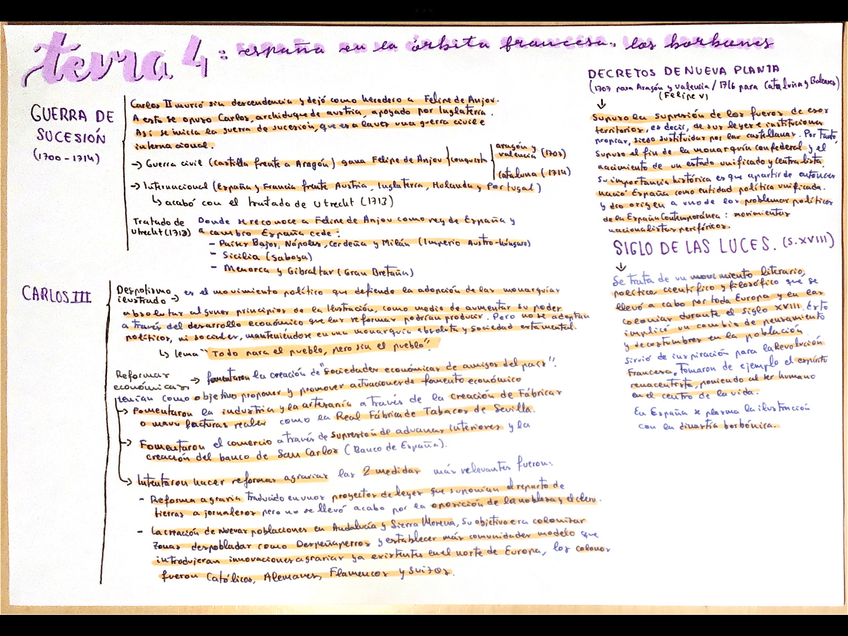 tema 4: españa en la órbita francesa, los borbones
GUERRA DE
SUCESIÓN
(1700-1714)
Carlos II murió sin descendencia y dejó como heredero a Felipe de Anjou.
A esta se opuso Carlos, archiduque de austria, apoyado por Inglaterra.
Así se inicia la guerra de sucesión, que es a la vez una guerra civil e
internacional.
→ Guerra civil (Castilla frente a Aragón) gana Felipe de Anjou conquista
aragón y
valencia (1707)
cataluña (1714)
→ Internacional (España y Francia frente Austria, Inglaterra, Holanda y Portugal)
↳ acabó con el tratado de utrecht (1713)
Tratado de
utrecht (1713)
Donde se reconoce a Felipe de Anjou como rey de España y
a cambio España cede:
- Países Bajos, Nápoles, Cerdeña y Milán (Imperio Austro-húngaro)
- Sicilia (Saboya)
- Menorca y Gibraltar (Gran Bretaña)
CARLOS III
Despotismo
ilustrado → es el movimiento político que defiende la adopción de las monarquías
absolutas algunos principios de la Ilustración, como medio de aumentar su poder
a través del desarrollo económico que las reformas podrían producir. Pero no se adaptan
políticas, ni sociales, manteniéndose en una monarquía absoluta y sociedad estamental.
↳ lema "Todo para el pueblo, pero sin el pueblo".
Reformas
económicas → fomentaron la creación de "Sociedades económicas de amigos del país".
tenían como objetivo proponer y promover actuaciones de fomento económico
→ Fomentaron la industria y la artesanía a través de la creación de Fábricas
o manufacturas reales como la Real Fábrica de Tabacos de Sevilla.
→ Fomentaron el comercio a través de supresión de aduanas interiores y la
creación del banco de San Carlos (Banco de España).
→ Intentaron hacer reformas agrarias las 2 medidas más relevantes fueron:
- Reforma agraria traducida en unos proyectos de leyes que suponían el reparto de
tierras a jornaleros pero no se llevó a cabo por la oposición de la nobleza y el clero.
- La creación de nuevas poblaciones en Andalucía y Sierra Morena, su objetivo era colonizar
zonas despobladas como Despeñaperros y establecer más comunidades modelo que
introdujeran innovaciones agrarias ya existentes en el norte de Europa, los colonos
fueron Católicos, Alemanes, Flamencos y Suizos.
DECRETOS DE NUEVA PLANTA
(1707 para Aragón y Valencia / 1716 para Cataluña y Baleares)
(Felipe V)
↓
Supuso la supresión de los fueros de esos
territorios, es decir, de sus leyes e instituciones
propias, siendo sustituidas por las castellanas. Por tanto,
supuso el fin de la monarquía confederal y el
nacimiento de un estado unificado y centralista.
Su importancia histórica es que a partir de entonces
nació España como entidad política unificada.
y dio origen a uno de los problemas políticos
de la España Contemporánea: movimientos
nacionalistas periféricos.
SIGLO DE LAS LUCES. (S.XVIII)
↓
Se trata de un movimiento literario,
político, científico y filosófico que se
llevó a cabo por toda Europa y en las
colonias durante el siglo XVIII. Esto
implicó un cambio de pensamiento
y de costumbres en la población.
Sirvió de inspiración para la Revolución
Francesa, tomaron de ejemplo el espíritu
renacentista, poniendo al ser humano
en el centro de la vida.
En España se plasma la ilustración
con la dinastía borbónica.